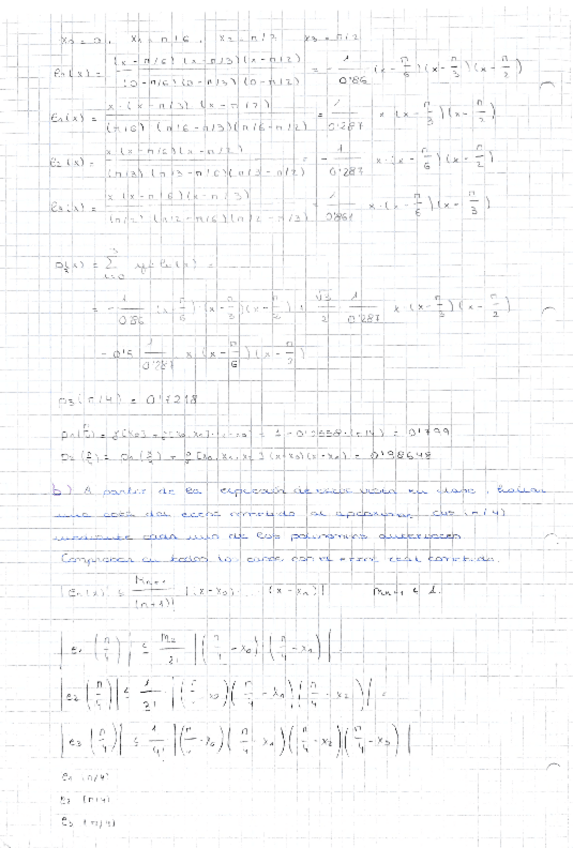 x₀ = 0, x₁ = π/6, x₂ = π/3, x₃ = π/2
l₀(x) = (x-π/6)(x-π/3)(x-π/2) / (0-π/6)(0-π/3)(0-π/2) = - 1/0'86 (x-π/6)(x-π/3)(x-π/2)
l₁(x) = x·(x-π/3)(x-π/2) / (π/6)(π/6-π/3)(π/6-π/2) = 1/0'287 x·(x-π/3)(x-π/2)
l₂(x) = x(x-π/6)(x-π/2) / (π/3)(π/3-π/6)(π/3-π/2) = - 1/0'287 x·(x-π/6)(x-π/2)
l₃(x) = x(x-π/6)(x-π/3) / (π/2)(π/2-π/6)(π/2-π/3) = 1/0'861 x·(x-π/6)(x-π/3)
p₃(x) = Σ yᵢ lᵢ(x) =
= - 1/0'86 (x-π/6)(x-π/3)(x-π/2) + √3/2 1/0'287 x·(x-π/3)(x-π/2)
- 0'5 1/0'287 x·(x-π/6)(x-π/2)
p₃(π/4) = 0'7218
p₁(π/4) = f[x₀] + f[x₀,x₁](x-x₀) = 1 - 0'2558·(π/4) = 0'799
p₂(π/4) = p₁(π/4) + f[x₀,x₁,x₂](x-x₀)(x-x₁) = 0'98648
b) A partir de la expresión de error vista en clase, hallar
una cota del error cometido al aproximar cos(π/4)
mediante cada uno de los polinomios anteriores.
Comprobar en todos los casos con el error real cometido.
|eₙ(x)| ≤ Mₙ₊₁/(n+1)! |(x-x₀)·...·(x-xₙ)| Mₙ₊₁ ≤ 1.
|e₁(π/4)| ≤ M₂/2! |(π/4-x₀)·(π/4-x₁)|
|e₂(π/4)| ≤ 1/3! |(π/4-x₀)(π/4-x₁)(π/4-x₂)| =
|e₃(π/4)| ≤ 1/4! |(π/4-x₀)(π/4-x₁)(π/4-x₂)(π/4-x₃)|
e₁(π/4)
e₂(π/4)
e₃(π/4)